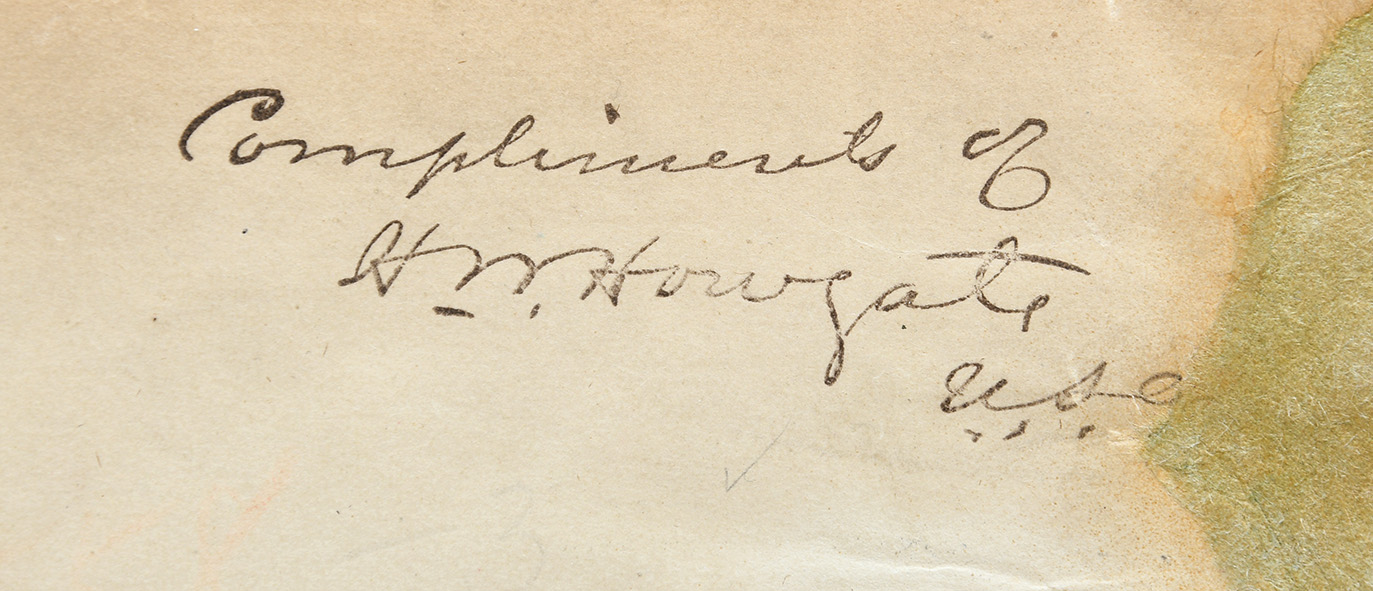 Compliments of
H.W. Howgate
U.S.